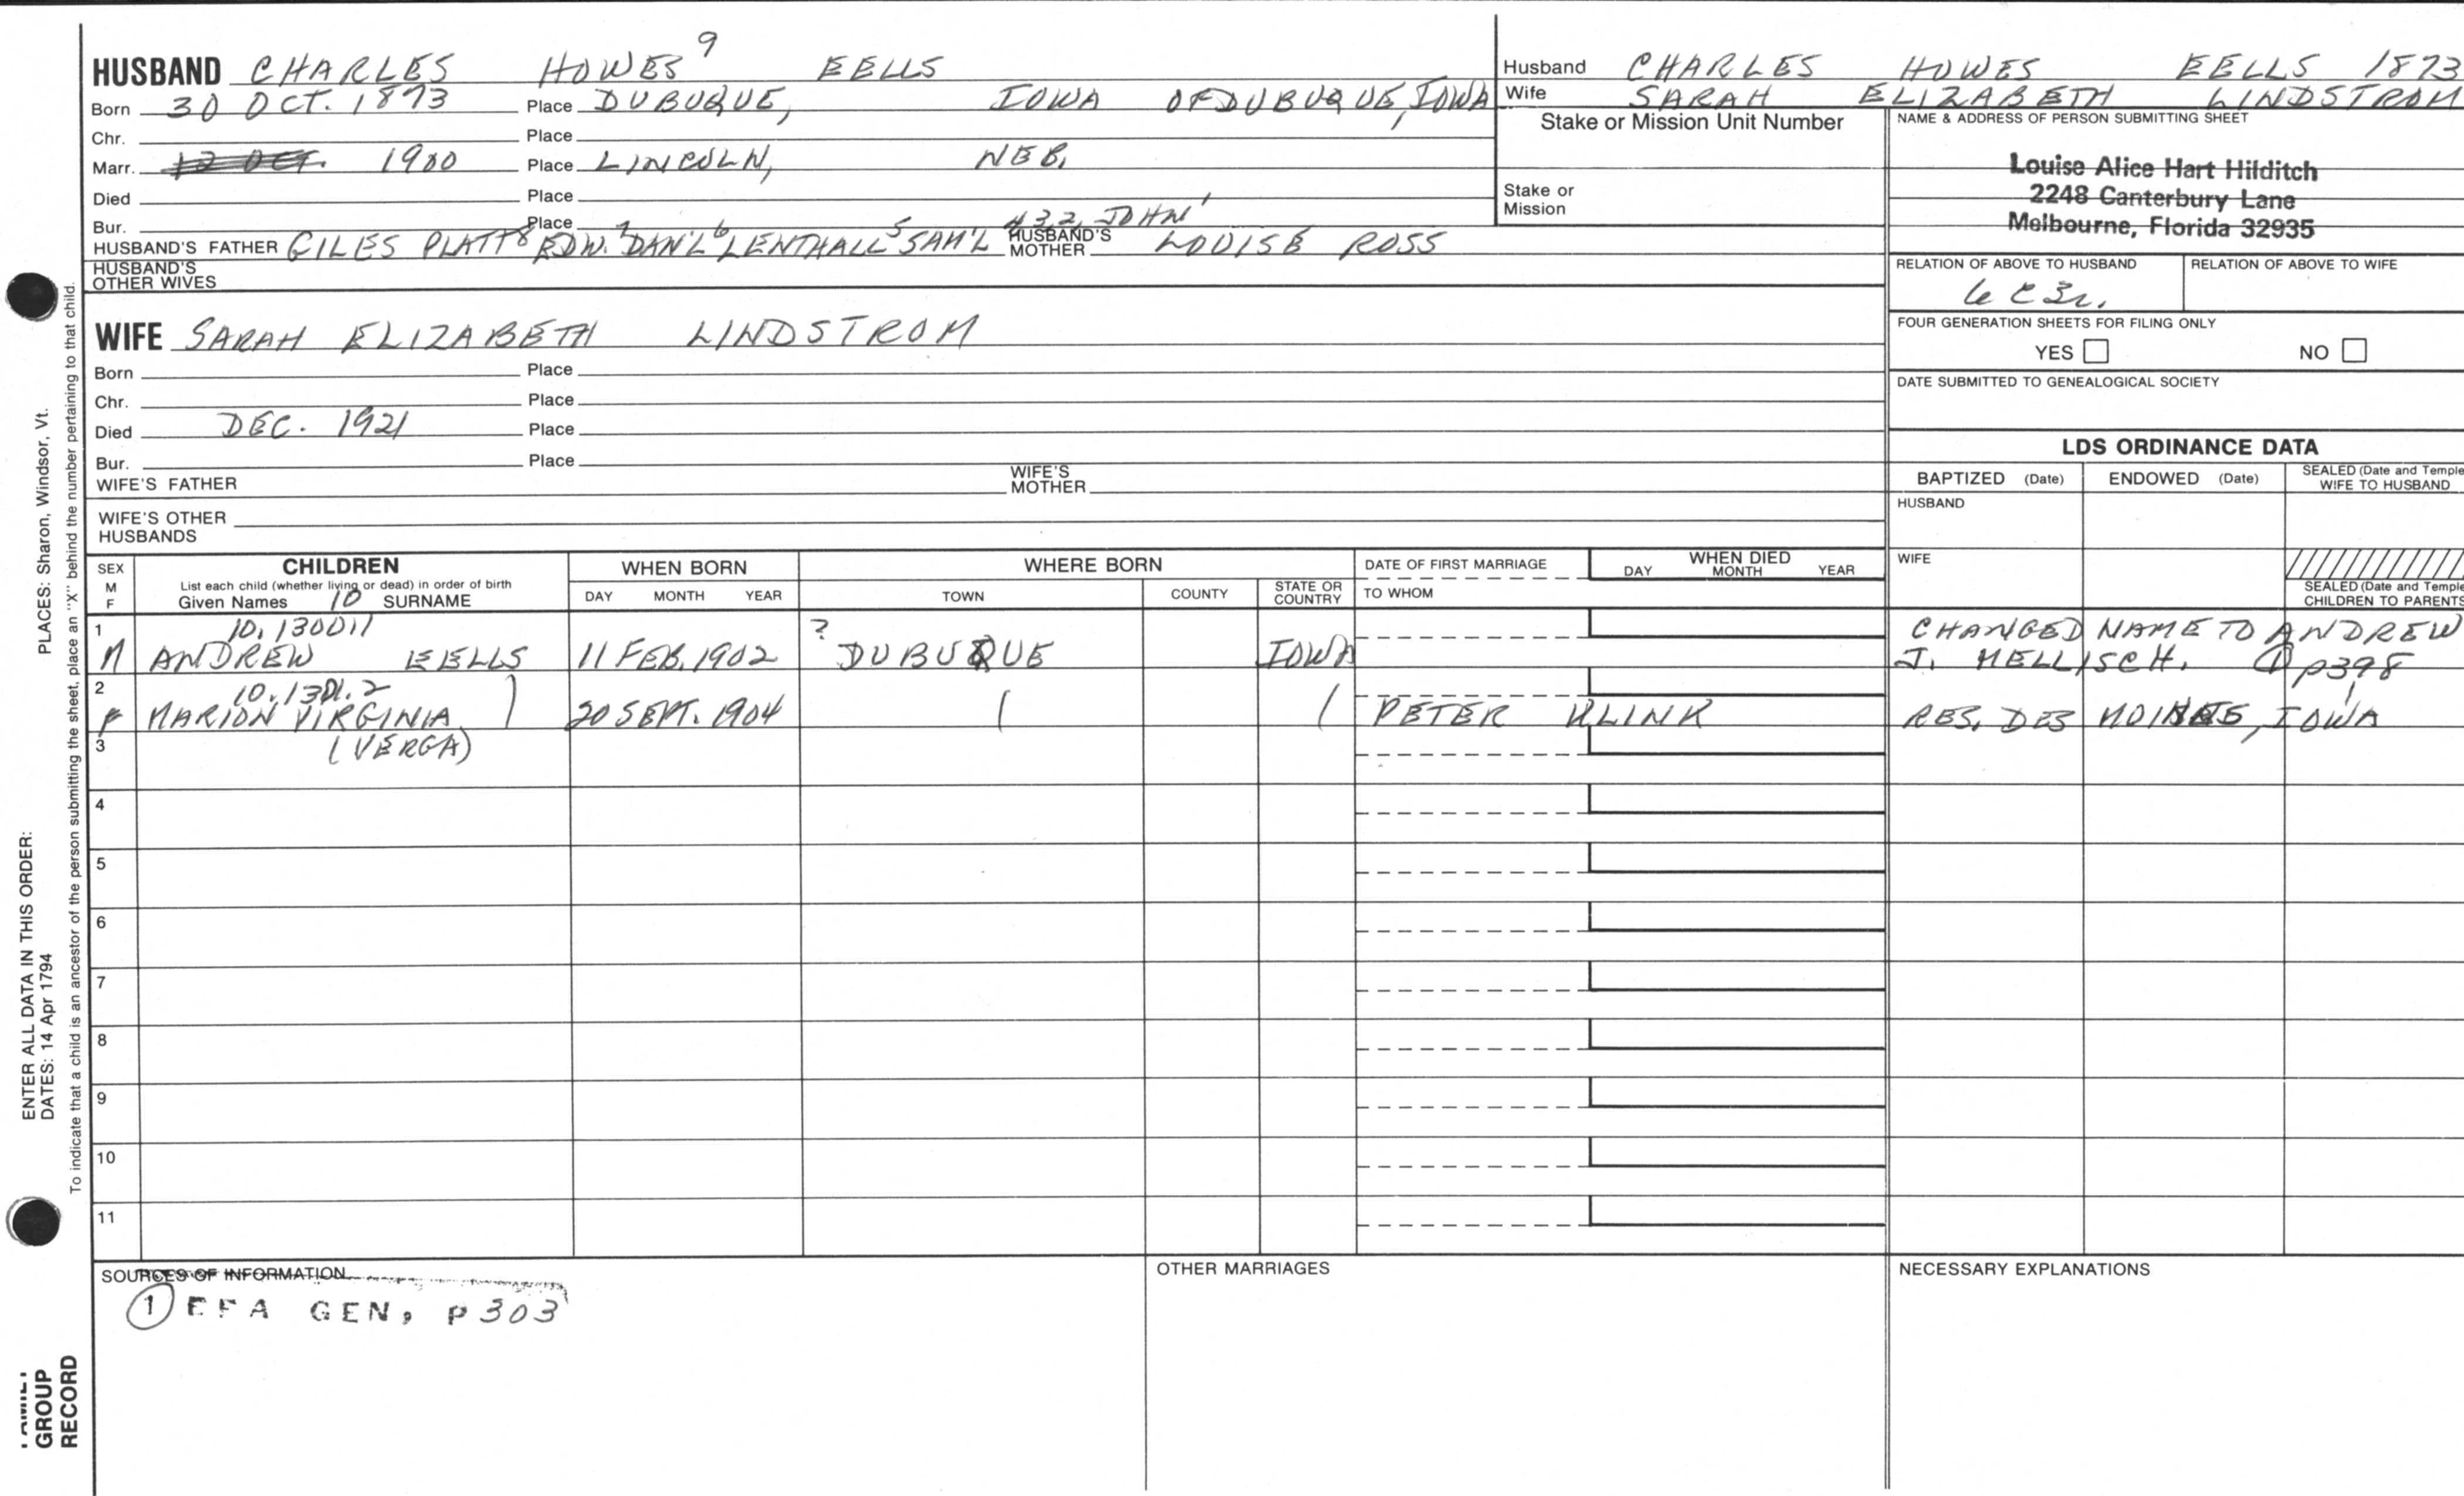 HUSBAND CHARLES HOWES 9 EELLS
Born 30 OCT. 1873 Place DUBUQUE, IOWA OF DUBUQUE, IOWA
Chr. Place
Marr. 1900 Place LINCOLN, NEB.
Died Place
Bur. Place
HUSBAND'S FATHER GILES PLATT 8 EDW. 7 DAN'L 6 LENTHALL 5 SAM'L 4 3 2 JOHN 1 HUSBAND'S MOTHER LOUISE ROSS
HUSBAND'S
OTHER WIVES
WIFE SARAH ELIZABETH LINDSTROM
Born Place
Chr. Place
Died DEC. 1921 Place
Bur. Place
WIFE'S FATHER WIFE'S MOTHER
WIFE'S OTHER
HUSBANDS
Husband CHARLES HOWES EELLS 1873
Wife SARAH ELIZABETH LINDSTROM
Stake or Mission Unit Number
Stake or
Mission
NAME & ADDRESS OF PERSON SUBMITTING SHEET
Louise Alice Hart Hilditch
2248 Canterbury Lane
Melbourne, Florida 32935
RELATION OF ABOVE TO HUSBAND RELATION OF ABOVE TO WIFE
6 C 3r.
FOUR GENERATION SHEETS FOR FILING ONLY
YES NO
DATE SUBMITTED TO GENEALOGICAL SOCIETY
LDS ORDINANCE DATA
BAPTIZED (Date) ENDOWED (Date) SEALED (Date and Temple
WIFE TO HUSBAND
HUSBAND
WIFE
SEALED (Date and Temple
CHILDREN TO PARENTS
SEX
M
F
CHILDREN
List each child (whether living or dead) in order of birth
Given Names 10 SURNAME
WHEN BORN
DAY MONTH YEAR
WHERE BORN
TOWN COUNTY STATE OR
COUNTRY
DATE OF FIRST MARRIAGE
TO WHOM
WHEN DIED
DAY MONTH YEAR
1 10.130011 ? CHANGED NAME TO ANDREW
M ANDREW EELLS 11 FEB. 1902 DUBUQUE IOWA J. MELLISCH. ① p398
2 10.1301.2
F MARION VIRGINIA ) 20 SEPT. 1904 ( ( PETER KLINK RES. DES MOINES, IOWA
3 (VERGA)
4
5
6
7
8
9
10
11
SOURCES OF INFORMATION
① EFA GEN, p303
OTHER MARRIAGES
NECESSARY EXPLANATIONS
PLACES: Sharon, Windsor, Vt.
ENTER ALL DATA IN THIS ORDER:
DATES: 14 Apr 1794
To indicate that a child is an ancestor of the person submitting the sheet, place an "X" behind the number pertaining to that child.
FAMILY
GROUP
RECORD